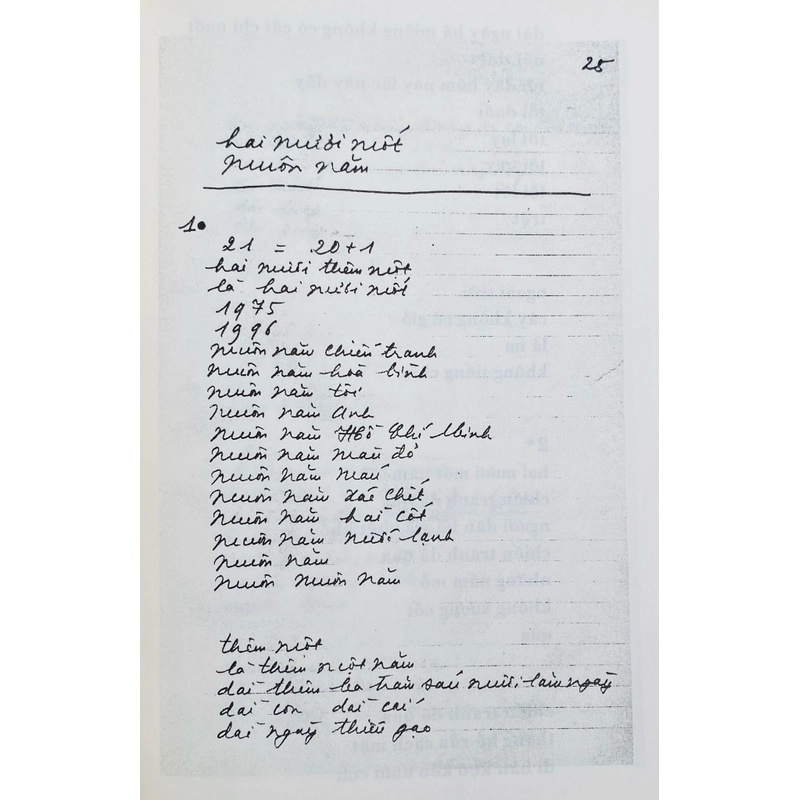 25
hai mươi mốt
muôn năm
1.
21 = 20+1
hai mươi thêm một
là hai mươi mốt
1975
1996
muôn năm chiến tranh
muôn năm hoà bình
muôn năm tôi
muôn năm anh
muôn năm Hồ Chí Minh
muôn năm màu đỏ
muôn năm máu
muôn năm xác chết
muôn năm hài cốt
muôn năm mười lạnh
muôn năm
muôn muôn năm
thêm một
là thêm một năm
dài thêm ba trăm sáu mươi lăm ngày
dài con dài cái
dài ngày thiếu gạo